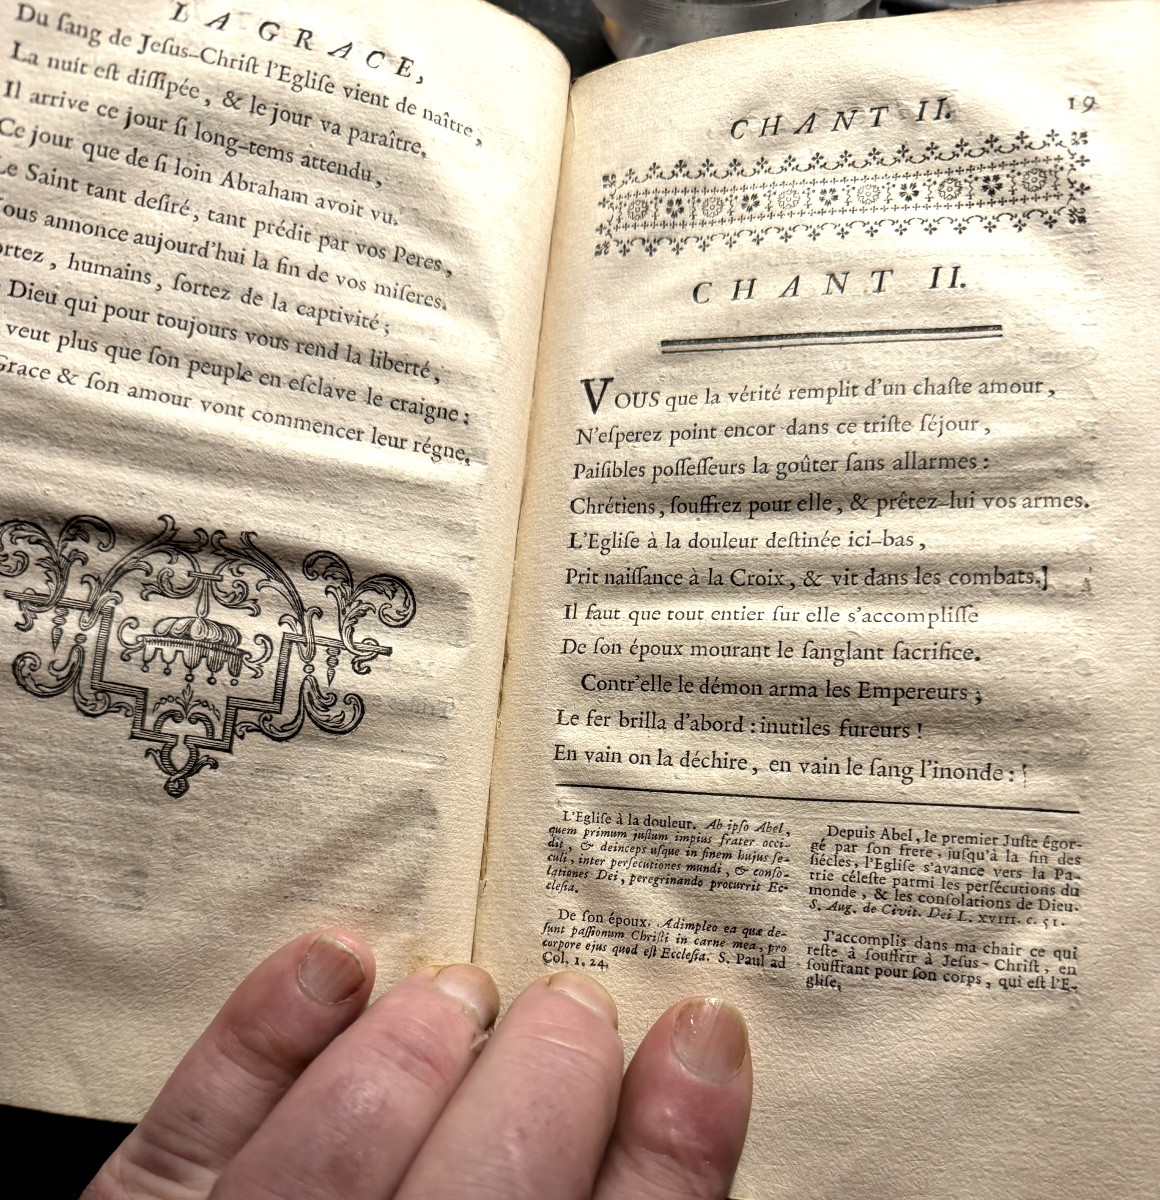 LA GRACE,
Du ſang de Jeſus-Chriſt l'Egliſe vient de naître,
La nuit eſt diſſipée, & le jour va paraître.
Il arrive ce jour ſi long-tems attendu,
Ce jour que de ſi loin Abraham avoit vu.
Le Saint tant deſiré, tant prédit par vos Peres,
ous annonce aujourd'hui la fin de vos miſeres.
ortez, humains, ſortez de la captivité;
Dieu qui pour toujours vous rend la liberté,
veut plus que ſon peuple en eſclave le craigne:
Grace & ſon amour vont commencer leur régne.
CHANT II. 19
CHANT II.
VOUS que la vérité remplit d'un chaſte amour,
N'eſperez point encor dans ce triſte ſéjour,
Paiſibles poſſeſſeurs la goûter ſans allarmes:
Chrétiens, ſouffrez pour elle, & prêtez-lui vos armes.
L'Egliſe à la douleur deſtinée ici-bas,
Prit naiſſance à la Croix, & vit dans les combats.]
Il faut que tout entier ſur elle s'accompliſſe
De ſon époux mourant le ſanglant ſacrifice.
Contr'elle le démon arma les Empereurs;
Le fer brilla d'abord: inutiles fureurs!
En vain on la déchire, en vain le ſang l'inonde:
L'Egliſe à la douleur. Ab ipſo Abel,
quem primum juſtum impius frater occi-
dit, & deinceps uſque in finem hujus ſe-
culi, inter perſecutiones mundi, & conſo-
lationes Dei, peregrinando procurrit Ec-
cleſia.
De ſon époux. Adimpleo ea quæ de-
ſunt paſſionum Chriſti in carne mea, pro
corpore ejus quod eſt Eccleſia. S. Paul ad
Col. 1. 24.
Depuis Abel, le premier Juſte égor-
gé par ſon frere, juſqu'à la fin des
ſiécles, l'Egliſe s'avance vers la Pa-
trie céleſte parmi les perſécutions du
monde, & les conſolations de Dieu.
S. Aug. de Civit. Dei L. XVIII. c. 51.
J'accomplis dans ma chair ce qui
reſte à ſouffrir à Jeſus-Chriſt, en
ſouffrant pour ſon corps, qui eſt l'E-
gliſe,